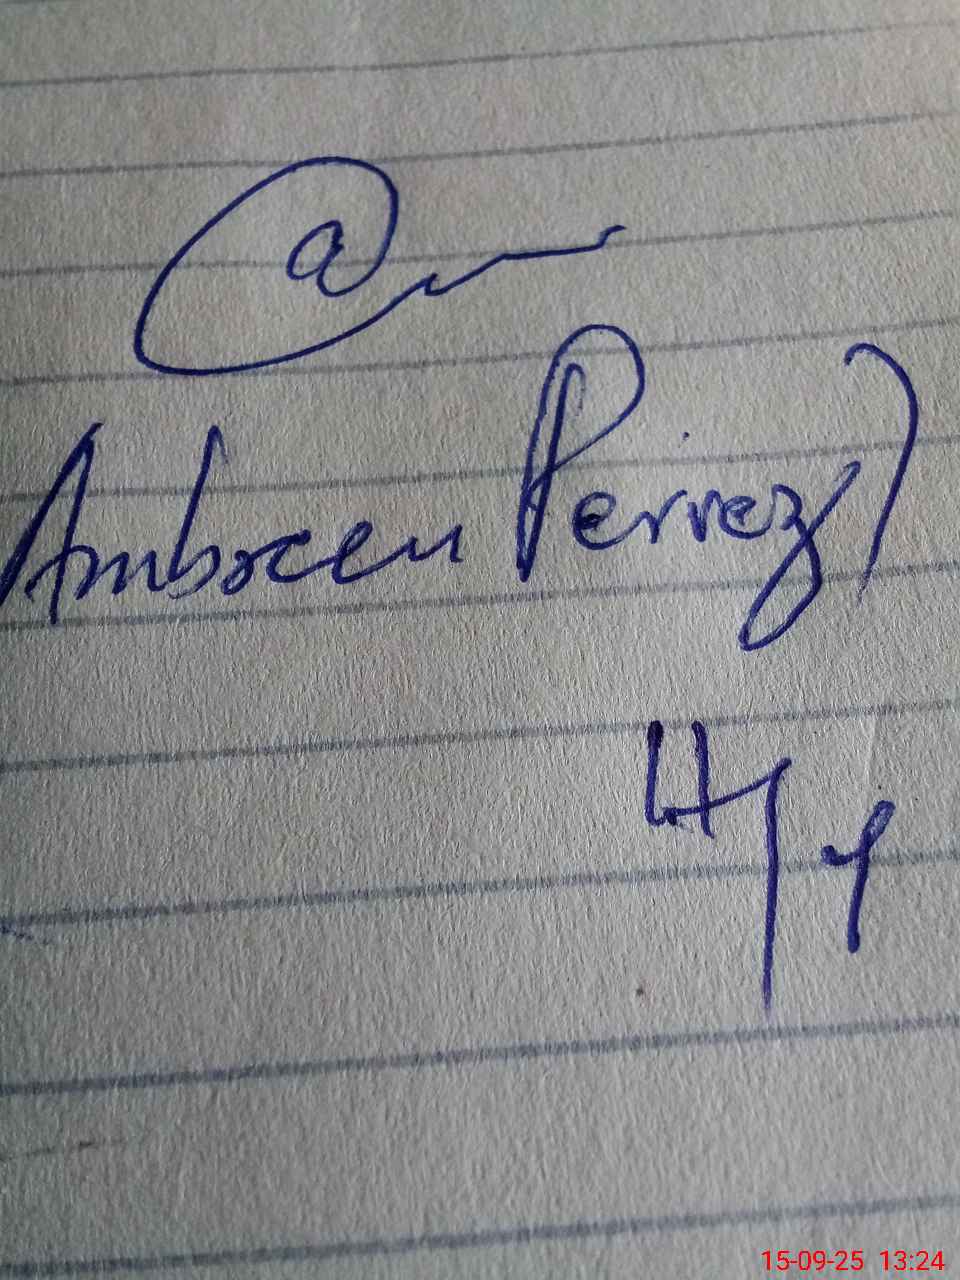 Ambreen Pervez)
4/9
15-09-25 13:24